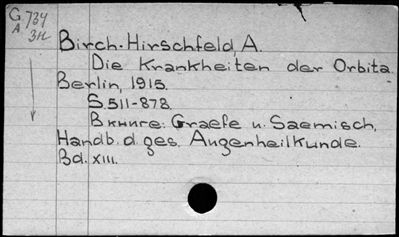 G 734
A 3н
Birch-Hirschfeld, A.
Die Krankheiten der Orbita.
Berlin, 1915.
S. 511-878.
В книге: Graefe u. Saemisch,
Handb. d. ges. Augenheilkunde.
Bd. XIII.